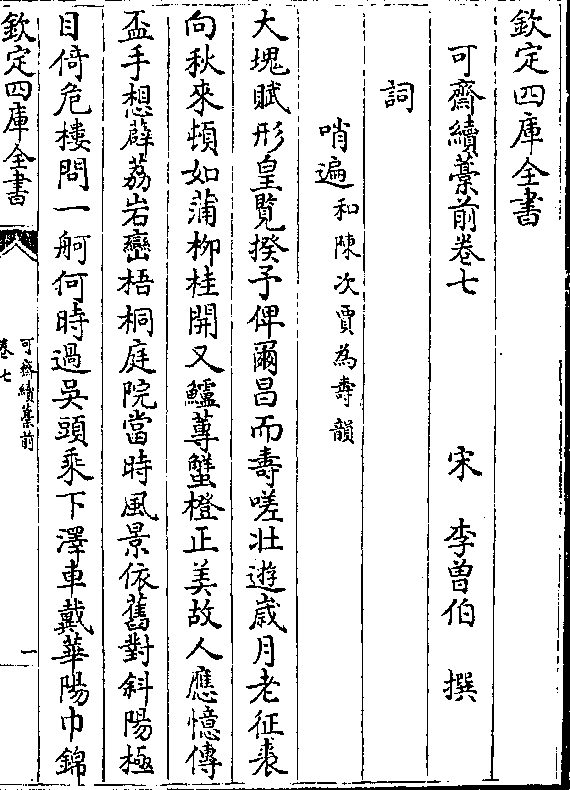 欽定四庫全書
可齋續藁前卷七
宋 李曽伯 撰
詞
哨遍和陳次賈為壽韻
大塊賦形皇覽揆予俾爾昌而壽嗟壯遊嵗月老征裘
向秋來頓如蒲柳桂開又鱸蓴蟹橙正美故人應憶傳
盃手想薜荔岩巒梧桐庭院當時風景依舊對斜陽極
目倚危樓問一舸何時過吳頭乘下澤車戴華陽巾錦
欽定四庫全書
可齋續藁前
卷七
一